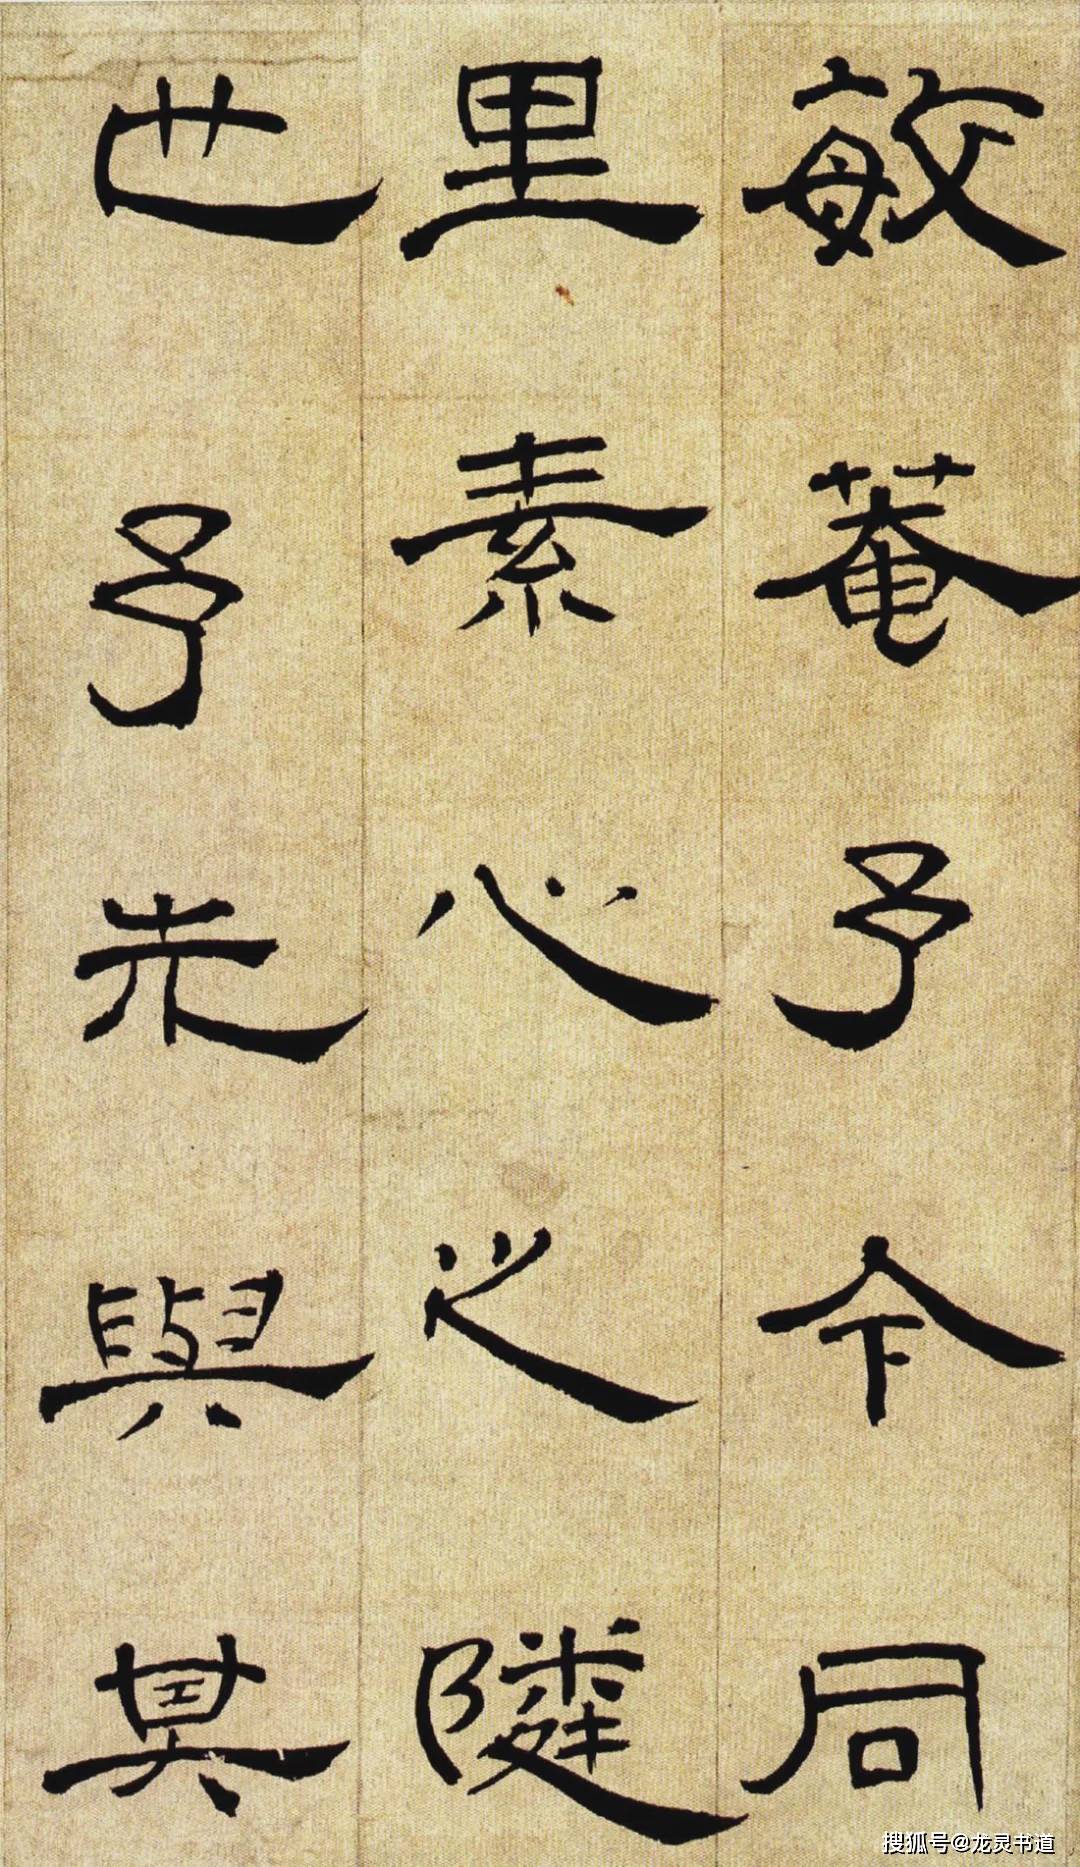 敏菴予令同
里素心之隣
世予未與其
搜狐号@龙灵书道